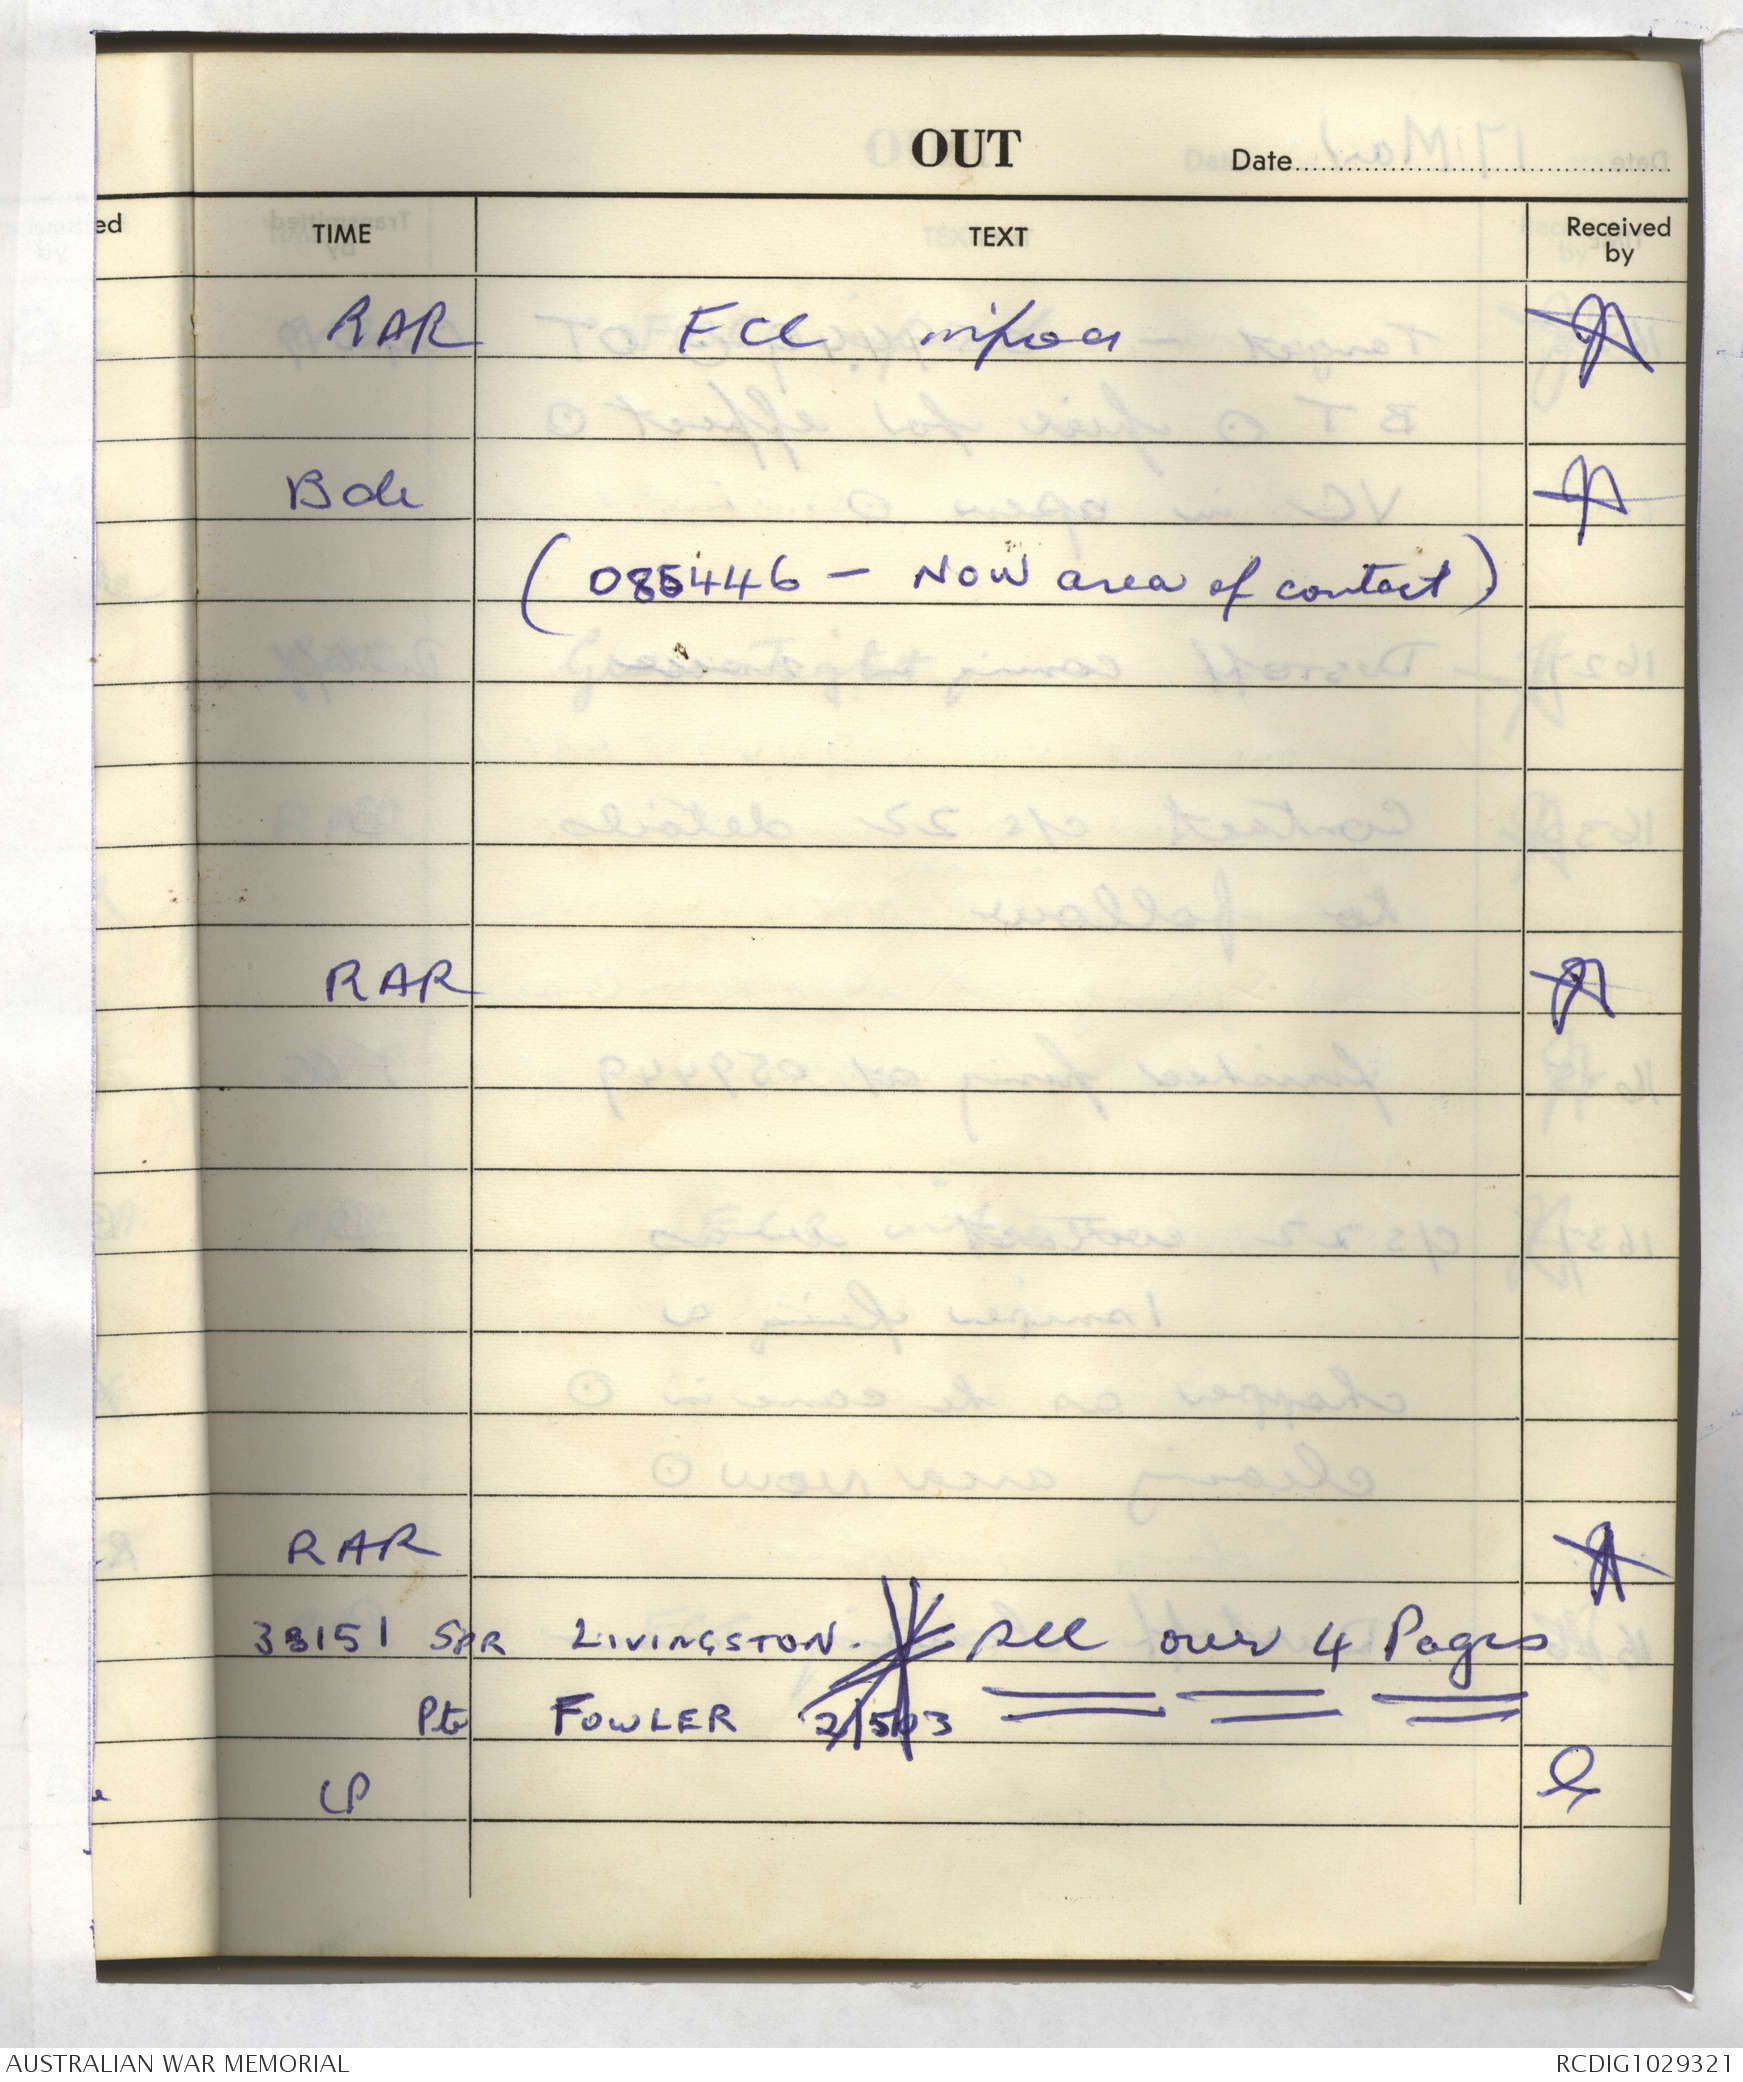 OUT
Date
ed TIME TEXT Received by
RAR FCE
Bde
(085446 - NOW area of contact)
RAR
RAR
38151 SPR LIVINGSTON. see over 4 Pages
Pte FOWLER
AUSTRALIAN WAR MEMORIAL RCDIG1029321